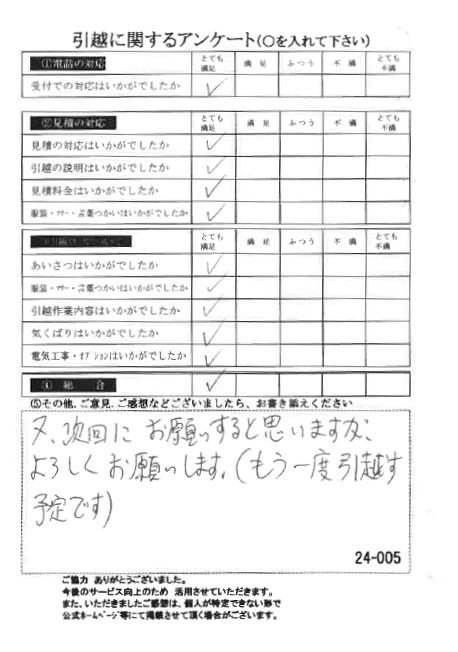 引越に関するアンケート(○を入れて下さい)
①電話の対応 とても満足 満足 ふつう 不満 とても不満
受付での対応はいかがでしたか ✓
②見積の対応 とても満足 満足 ふつう 不満 とても不満
見積の対応はいかがでしたか ✓
引越の説明はいかがでしたか ✓
見積料金はいかがでしたか ✓
服装・マナー・言葉つかいはいかがでしたか ✓
とても満足 満足 ふつう 不満 とても不満
あいさつはいかがでしたか ✓
服装・マナー・言葉つかいはいかがでしたか ✓
引越作業内容はいかがでしたか ✓
気くばりはいかがでしたか ✓
電気工事・オプションはいかがでしたか ✓
④総合 ✓
⑤その他、ご意見、ご感想などございましたら、お書き添えください
又、次回にお願いすると思いますが、
よろしくお願いします。(もう一度引越す
予定です)
24-005
ご協力 ありがとうございました。
今後のサービス向上のため 活用させていただきます。
また、いただきましたご感想は、個人が特定できない形で
公式ホームページ等にて掲載させて頂く場合がございます。